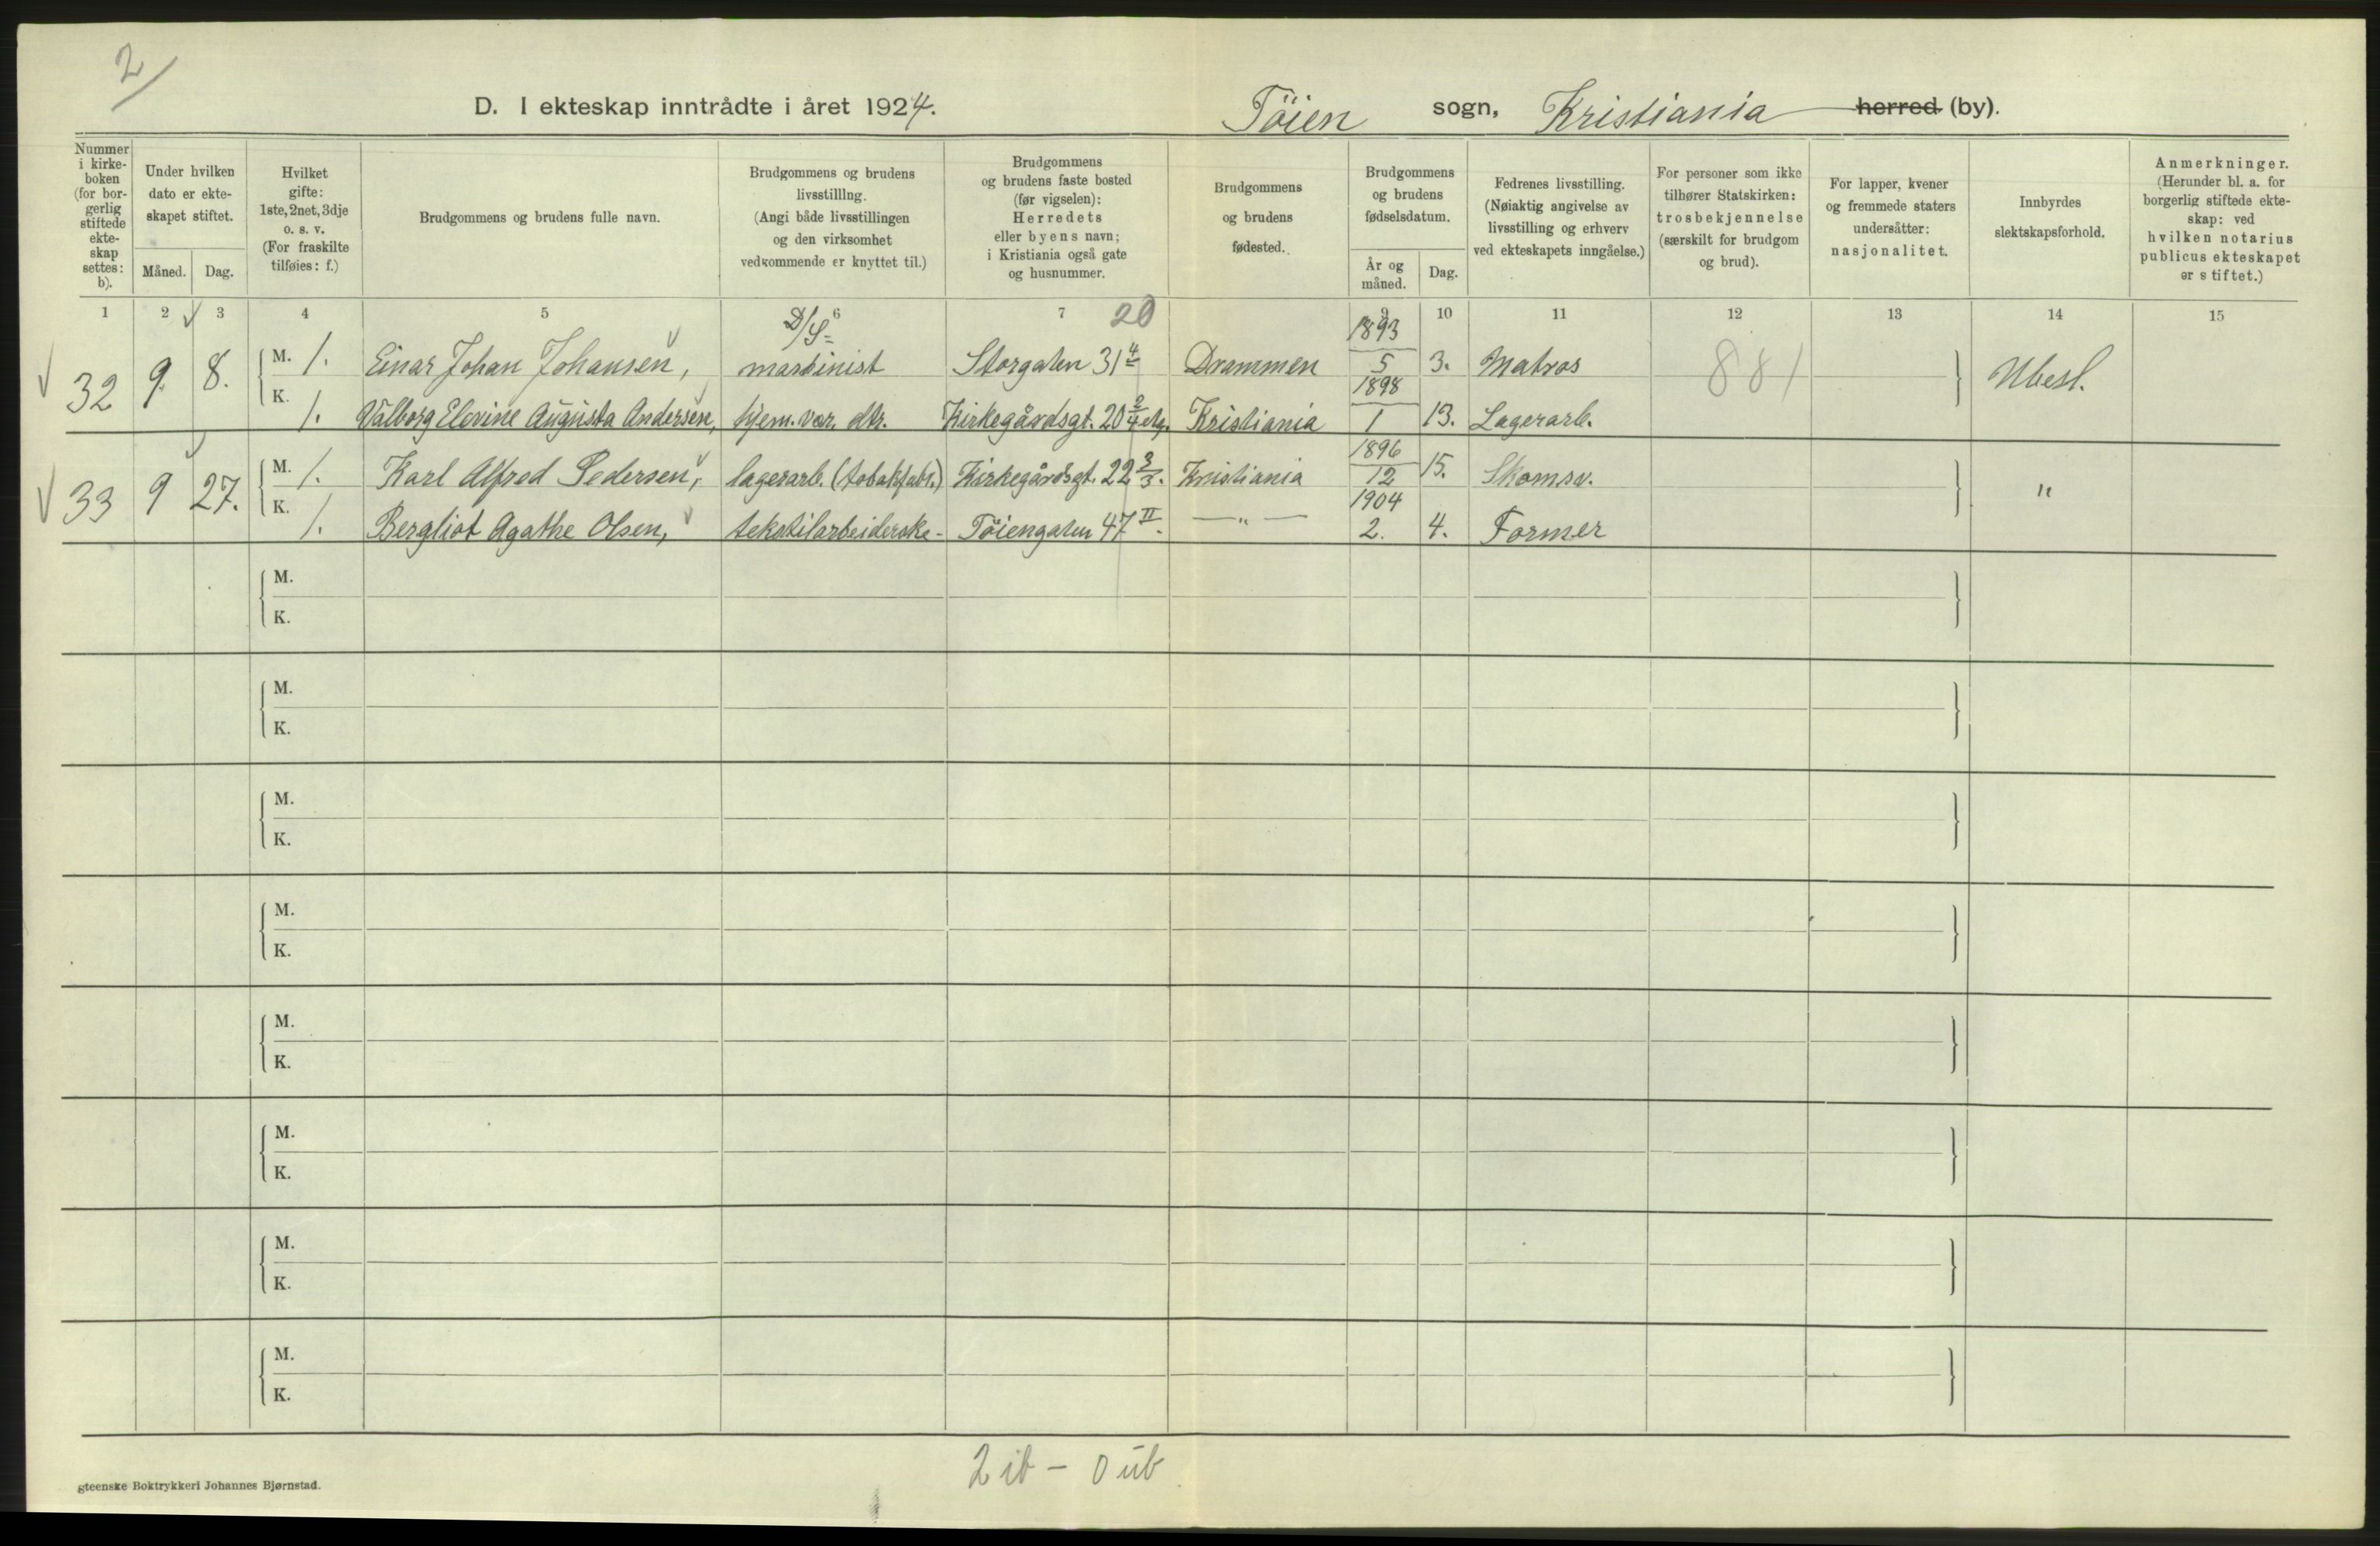 2/
D. I ekteskap inntrådte i året 1924.
Töien sogn, Kristiania herred (by).
Nummer
i kirke-
boken
(for bor-
gerlig
stiftede
ekte-
skap
settes:
b).
Under hvilken
dato er ekte-
skapet stiftet.
Måned. Dag.
Hvilket
gifte:
1ste, 2net, 3dje
o. s. v.
(For fraskilte
tilføies: f.)
Brudgommens og brudens fulle navn.
Brudgommens og brudens
livsstilllng.
(Angi både livsstillingen
og den virksomhet
vedkommende er knyttet til.)
Brudgommens
og brudens faste bosted
(før vigselen):
Herredets
eller byens navn;
i Kristiania også gate
og husnummer.
Brudgommens
og brudens
fødested.
Brudgommens
og brudens
fødselsdatum.
År og
måned.
Dag.
Fedrenes livsstilling.
(Nøiaktig angivelse av
livsstilling og erhverv
ved ekteskapets inngåelse.)
For personer som ikke
tilhører Statskirken:
trosbekjennelse
(særskilt for brudgom
og brud).
For lapper, kvener
og fremmede staters
undersåtter:
nasjonalitet.
Innbyrdes
slektskapsforhold.
Anmerkninger.
(Herunder bl. a. for
borgerlig stiftede ekte-
skap: ved
hvilken notarius
publicus ekteskapet
er stiftet.)
1 2 3 4 5 6 7 20 9 10 11 12 13 14 15
D/S-
1893
32 9. 8. M. 1. Einar Johan Johansen, maskinist Storgaten 31 4 Drammen 5 3. Matros 881 Ubesl.
1898
K. 1. Valborg Elovine Augusta Andersen, hjem. vær. dtr. Kirkegårdsgt. 20 2/4 etg. Kristiania 1 13. Lagerarb.
1896
33 9 27. M. 1. Karl Alfred Pedersen, lagerarb. (tobakfabr.) Kirkegårdsgt. 22 3/3. Kristiania 12 15. Skomsv. "
1904
K. 1. Bergliot Agathe Olsen, tekstilarbeiderske - Töiengaten 47 II. — " — 2. 4. Former
M.
K.
M.
K.
M.
K.
M.
K.
M.
K.
M.
K.
M.
K.
M.
K.
2 ib - 0 ub
gteenske Boktrykkeri Johannes Bjørnstad.